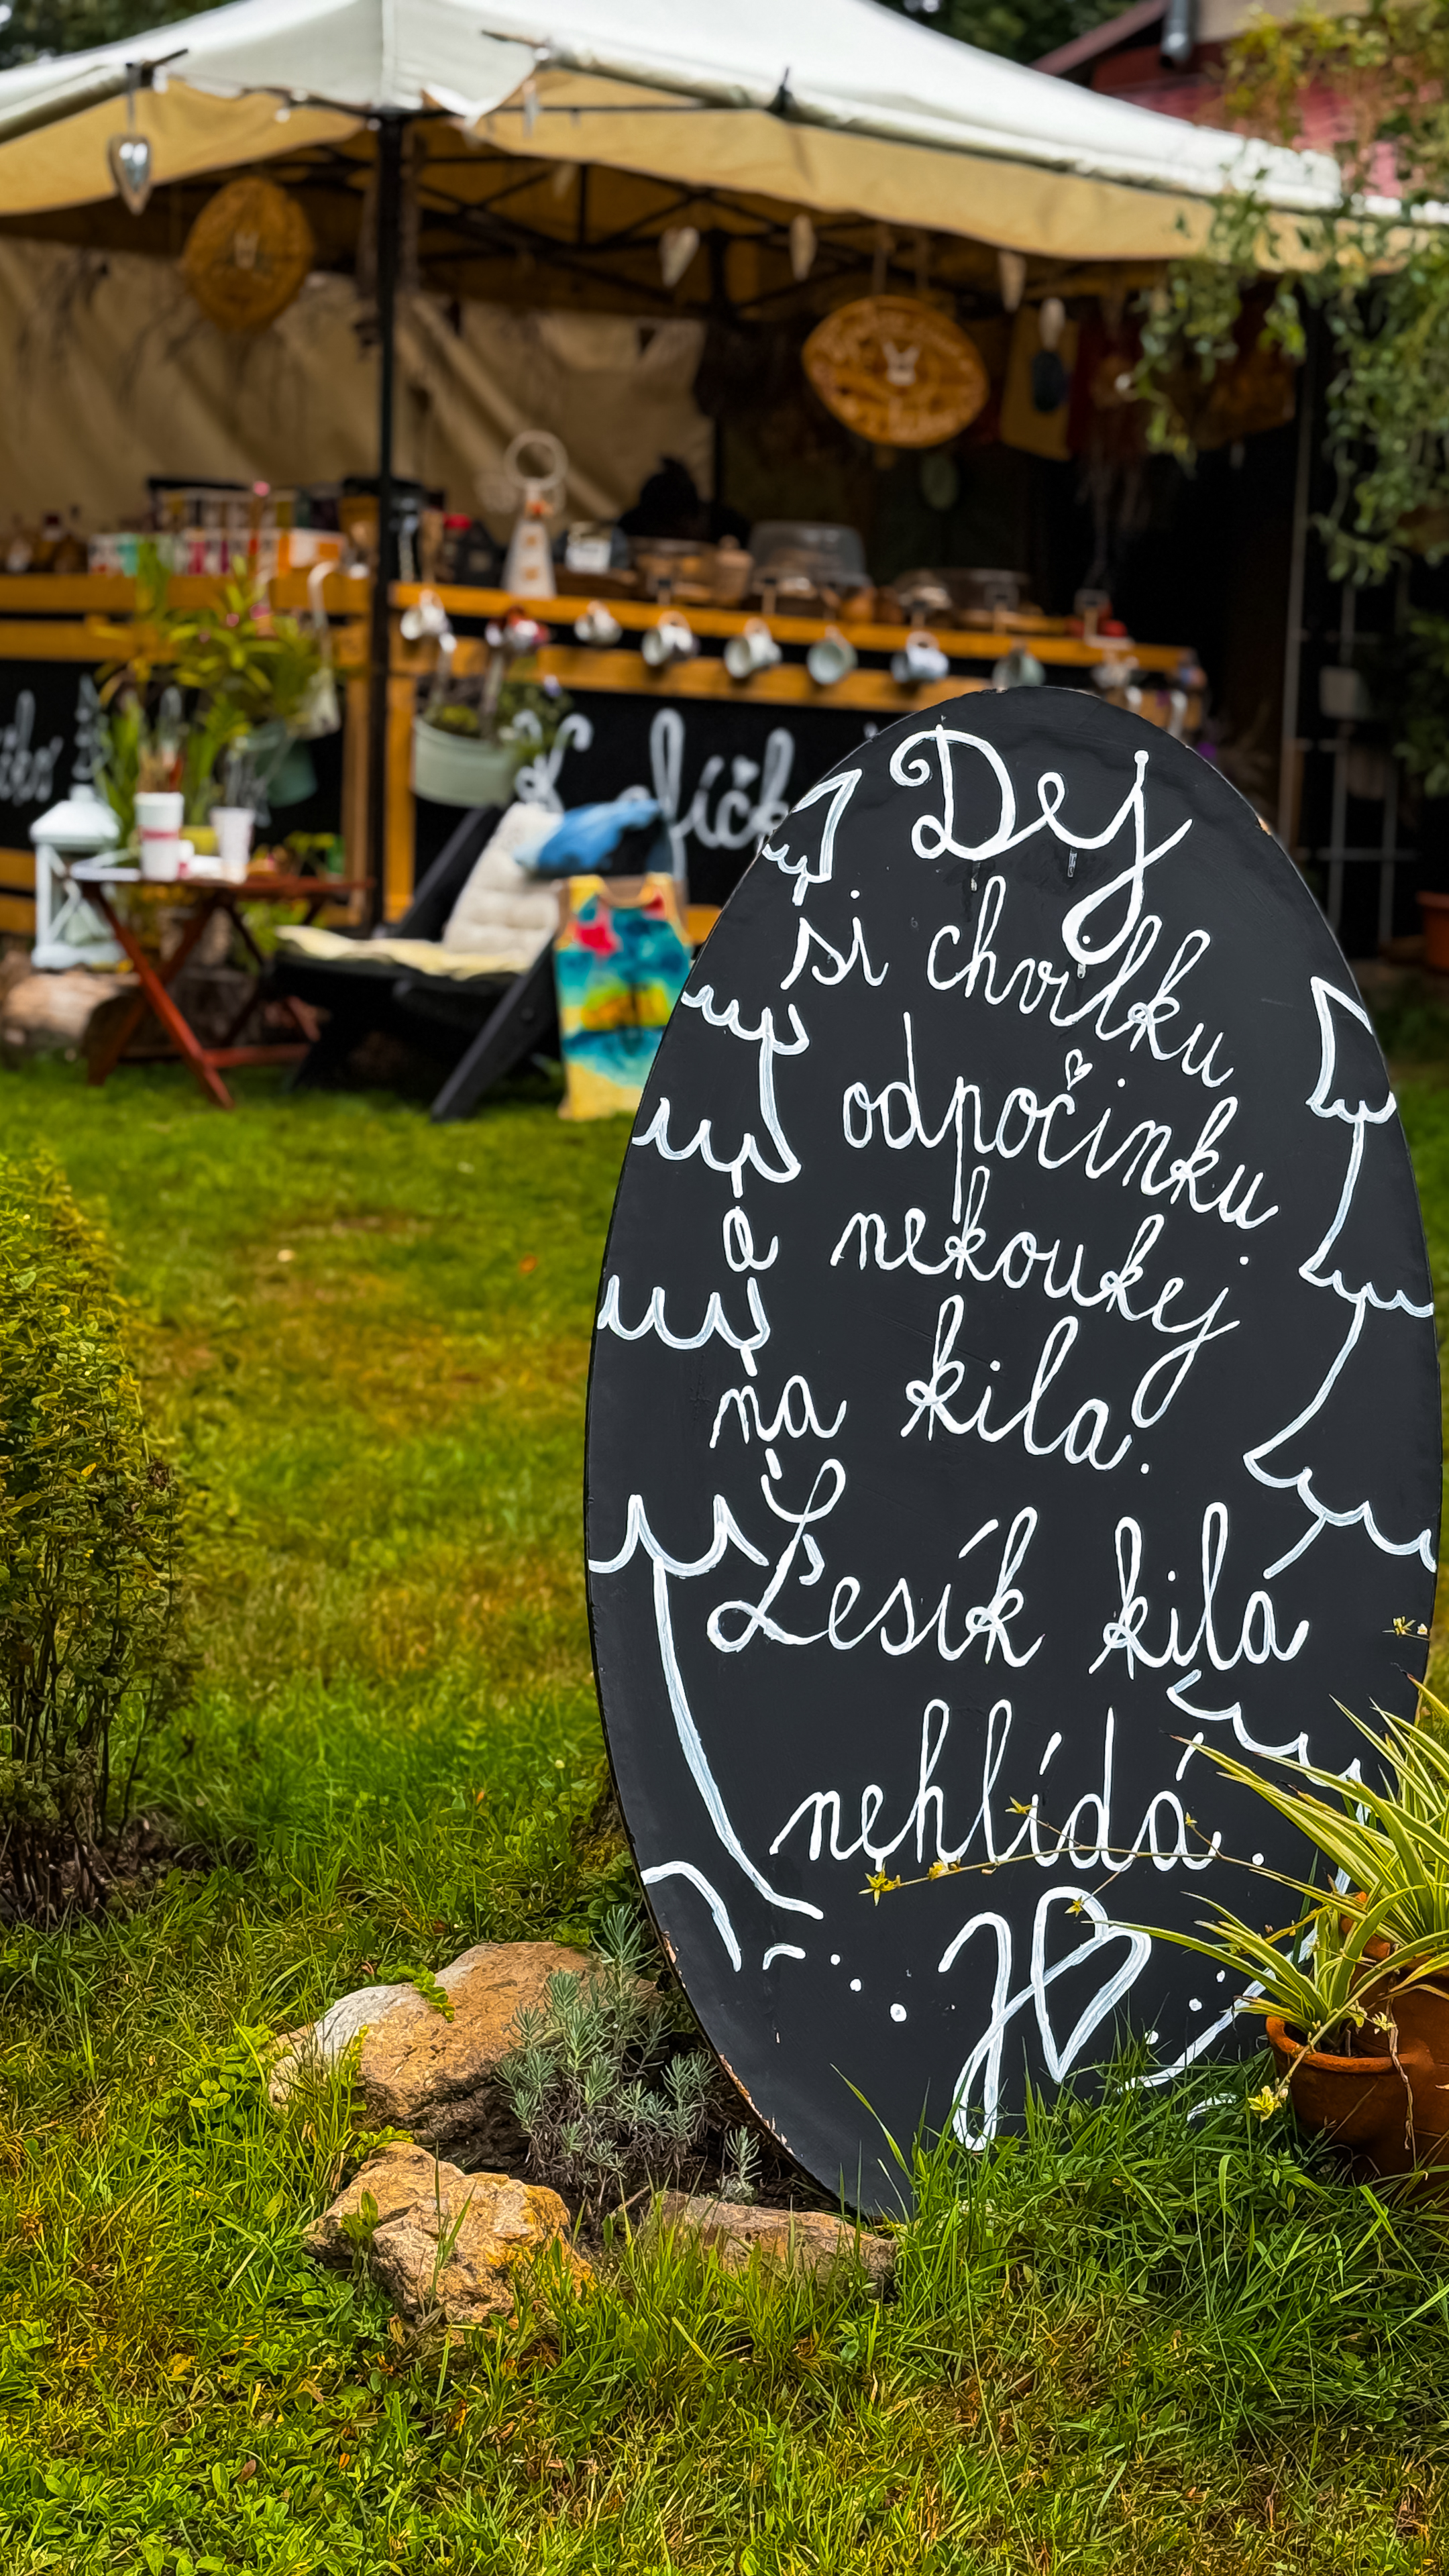 Dej
si chvilku
odpočinku
a nekoukej
na kila.
Lesík kila
nehlídá.